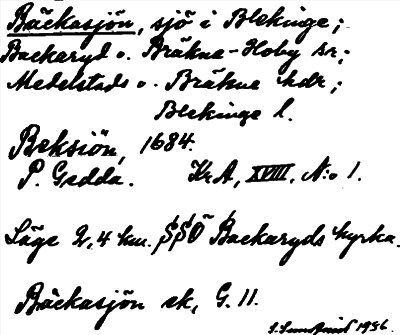 Bäckasjön, sjö i Blekinge;
Backaryd o. Bräkne-Hoby snr;
Medelstads o. Bräkne hdr;
Blekinge l.
Beksiön, 1684.
P. Gedda. KrA, XVIII. N:o 1.
Läge 2,4 km. SSO Backaryds kyrka.
Bäckasjön ek, G. 11.
1956.